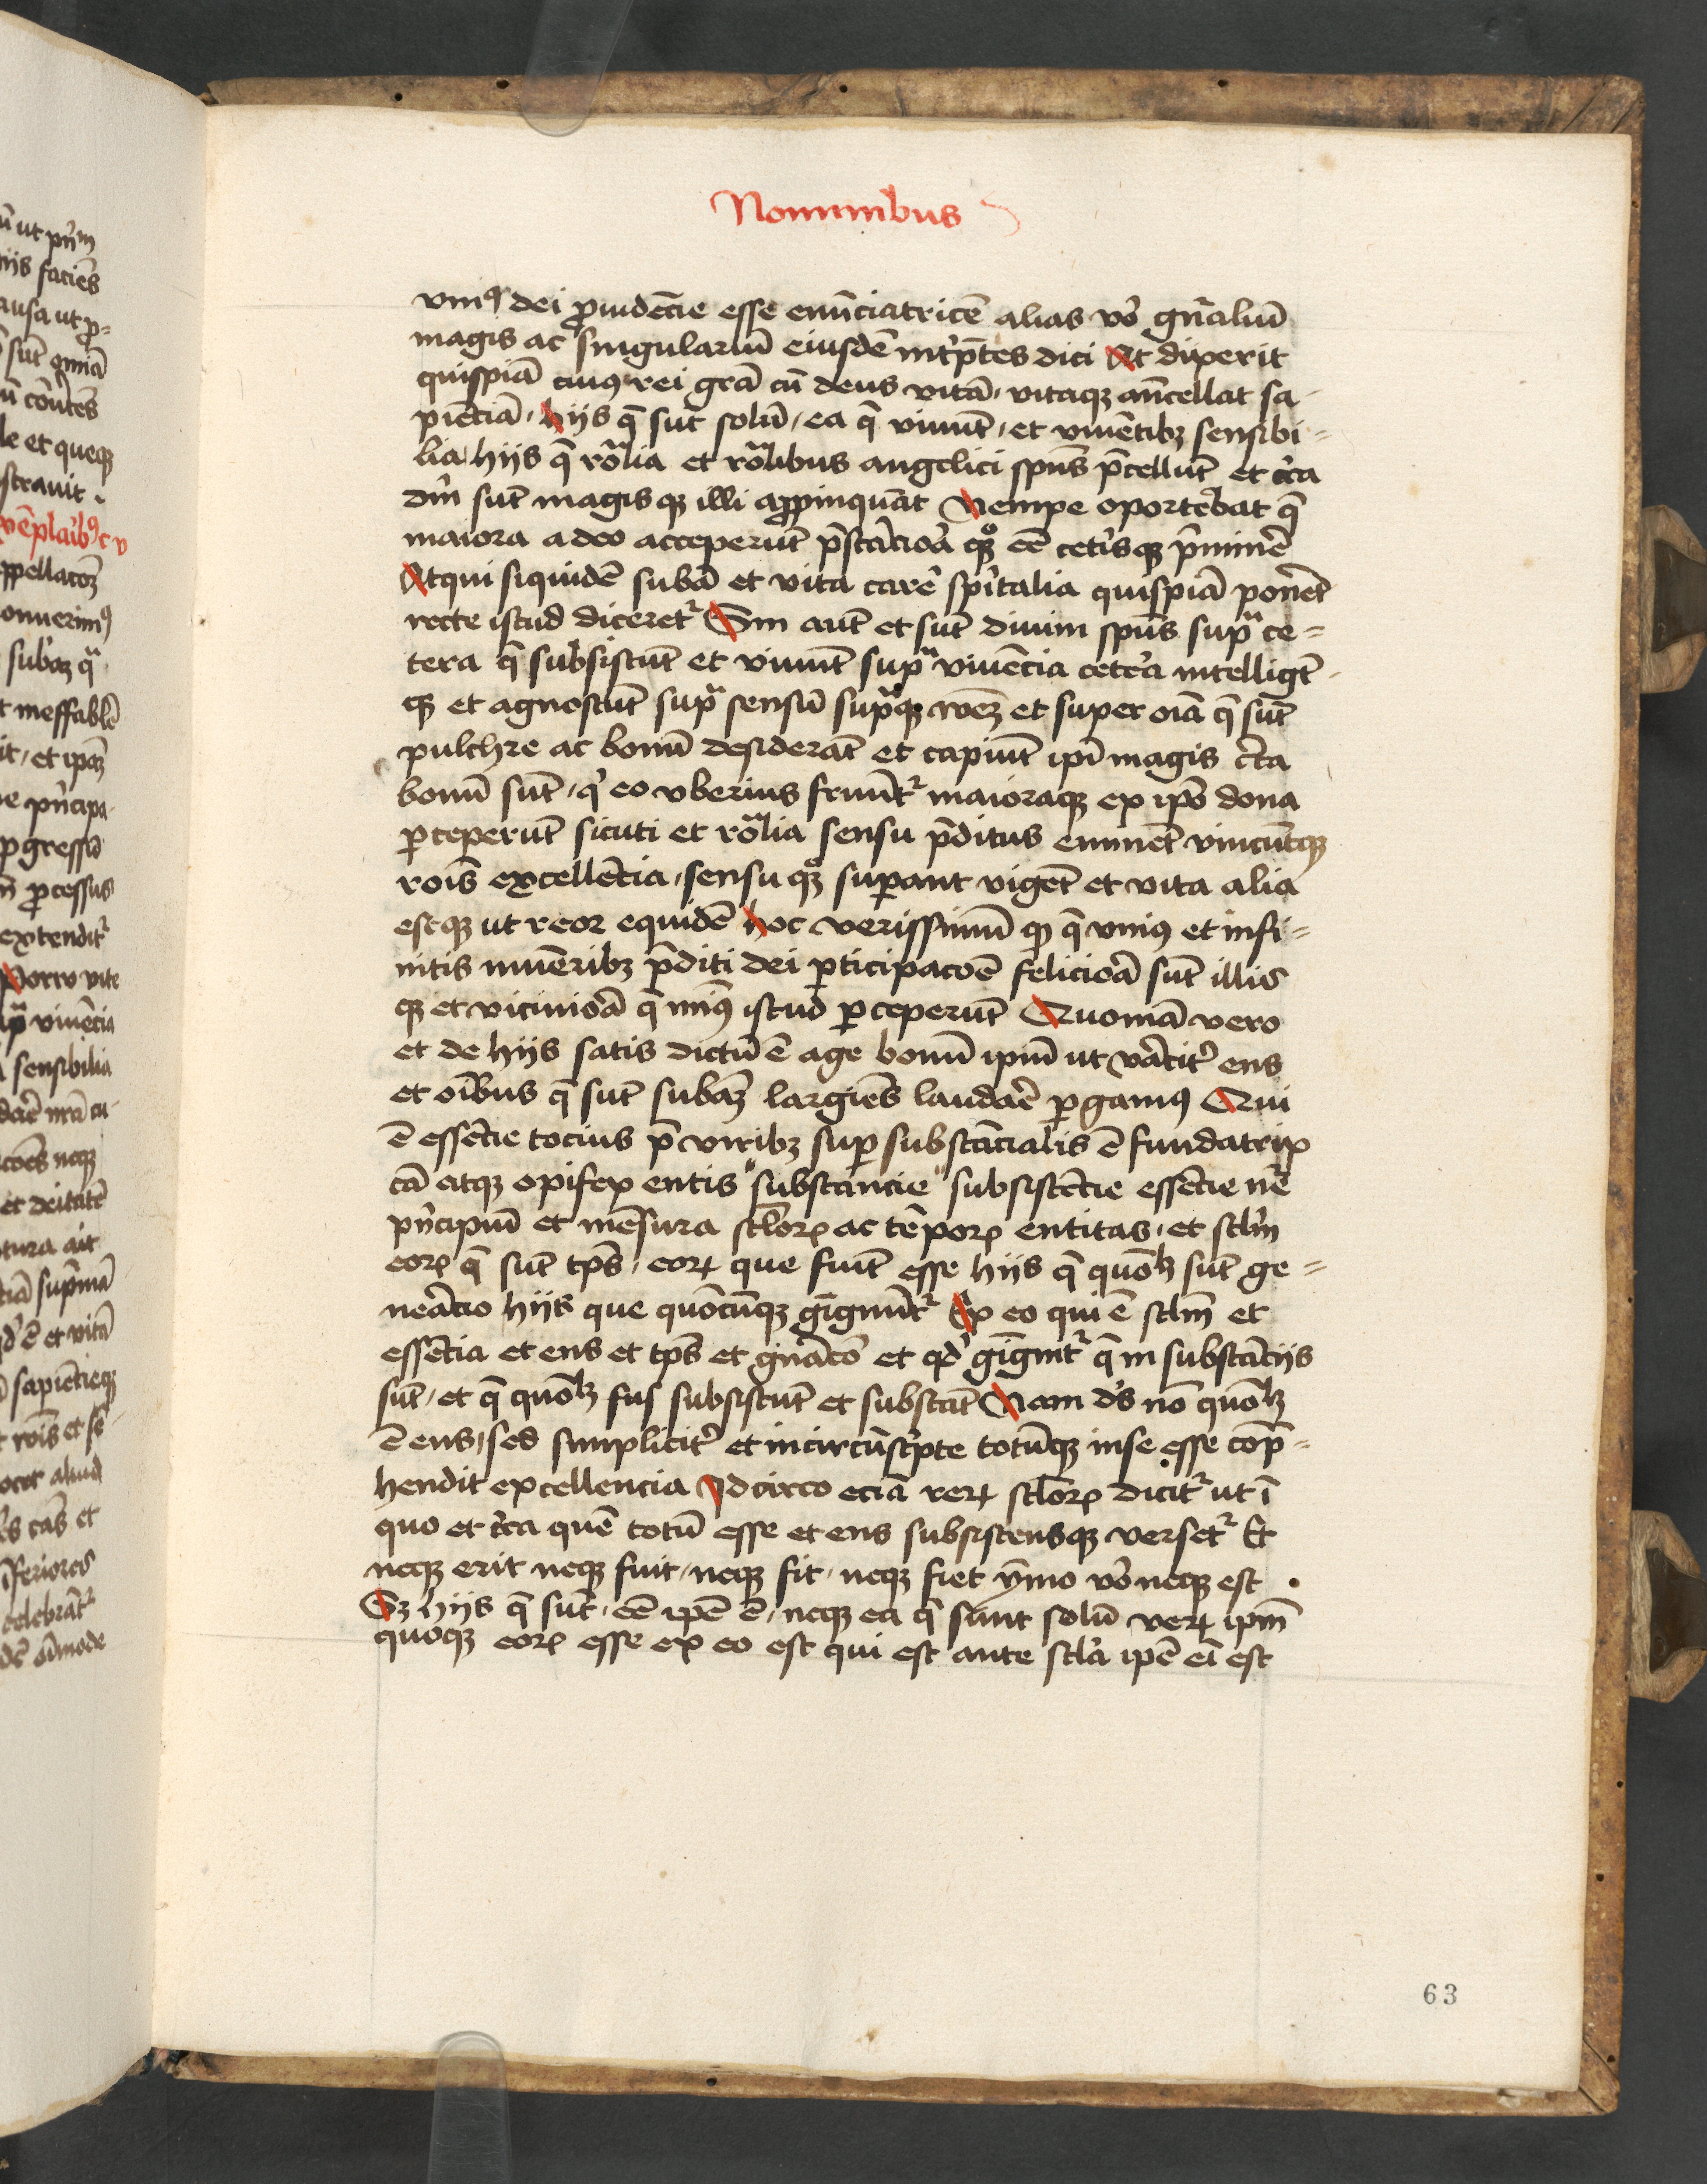 Nominibus
vniꝰ dei ꝓuidēcie esse enūciatricē alias vō gn̄aliū
magis ac singulariū eiusdē int̄p̄tes dici At dixerit
quispiā cuiꝰ rei grā cū deus vitā, vitaqꝫ an̄cellat sa-
piēciā, hijs q̄ sūt solū, ea q̄ viuūt, et viuētibꝫ sensibi=
lia, hijs q̄ rōalia et rōalibus angelici spūs p̄cellūt et cͥca
dm̄ sūt magisqꝫ illi appinquāt Nempe oportebat q̄
maiora a deo acceperūt p̄stācioā qꝫ eē cetīsqꝫ p̄minē
Atqui siquidē subā et vita carē spīrtalia quispiā ponēt
recte istud diceret᷑ Sin aūt et sūt diuini spūs supͣ ce=
tera q̄ subsistūt et viuūt supͣ viuēcia cetēa intelligūt
qꝫ et agnoscūt supͣ sensū supͣqꝫ rōeꝫ et super oīa q̄ sūt
pulchre ac bonū desiderāt et capiūt ipī magis cͥca
bonū sūt, qͥ eo vberius fruūt᷑ maioraqꝫ ex ipō dona
ꝑceperūt sicuti et rōalia sensu p̄ditus eminēt vincūtqꝫ
rōis excellēcia, sensu qꝫ suꝑant vigēt et vita alia
estqꝫ ut reor equidē hoc verissimū qꝫ q̄ vniꝰ et infi=
nitis muēribꝫ p̄diti dei ꝑticipacōē felicioā sūt illis
qꝫ et vicinioā q̄ minꝰ istud ꝑceperūt Quoniā vero
et de hijs satis dictū ē age bonū ipm̄ ut vācit̄ ens
et oībus q̄ sūt subaꝫ largiēs laudaē ꝑgamꝰ Qui
ē essēcie tocius p̄ viribꝫ suꝑ substācialis ē fundatrix
cā atqꝫ opifex entis substancie subsistēcie essēcie nr̄e
pn̄cipiū et mēsura sclorꝝ ac tēporꝝ entitas, et sclm̄
eorꝝ q̄ sūt tp̄s, eorꝝ que fiūt esse hijs q̄ quōlꝫ sūt ge=
neācio hijs que quōcūqꝫ gignūt᷑ Ex eo qui ē sclm̄ et
essēcia et ens et tp̄s et gnācō et qd̓ gignit᷑ q̄ in substācijs
sūt, et q̄ quōlꝫ fus subsistūt et substāt Nam ds̄ nō quōlꝫ
ē ens, sed simplicit̄ et incircūscͥpte totūqꝫ in se esse cōp̄=
hendit excellencia Idcirco eciā rerꝝ sclorꝝ dicit᷑ ut ī
quo et cͥca quē totū esse et ens subsistensqꝫ verset᷑ Et
neqꝫ erit neqꝫ fuit, neqꝫ fit, neqꝫ fiet ȳmo vō neqꝫ est
Sꝫ hijs q̄ sūt, eē ipē ē, neqꝫ ea q̄ sunt solū verꝝ ipm̄
quoqꝫ eorꝝ esse ex eo est qui est ante scla ipē ei est
63